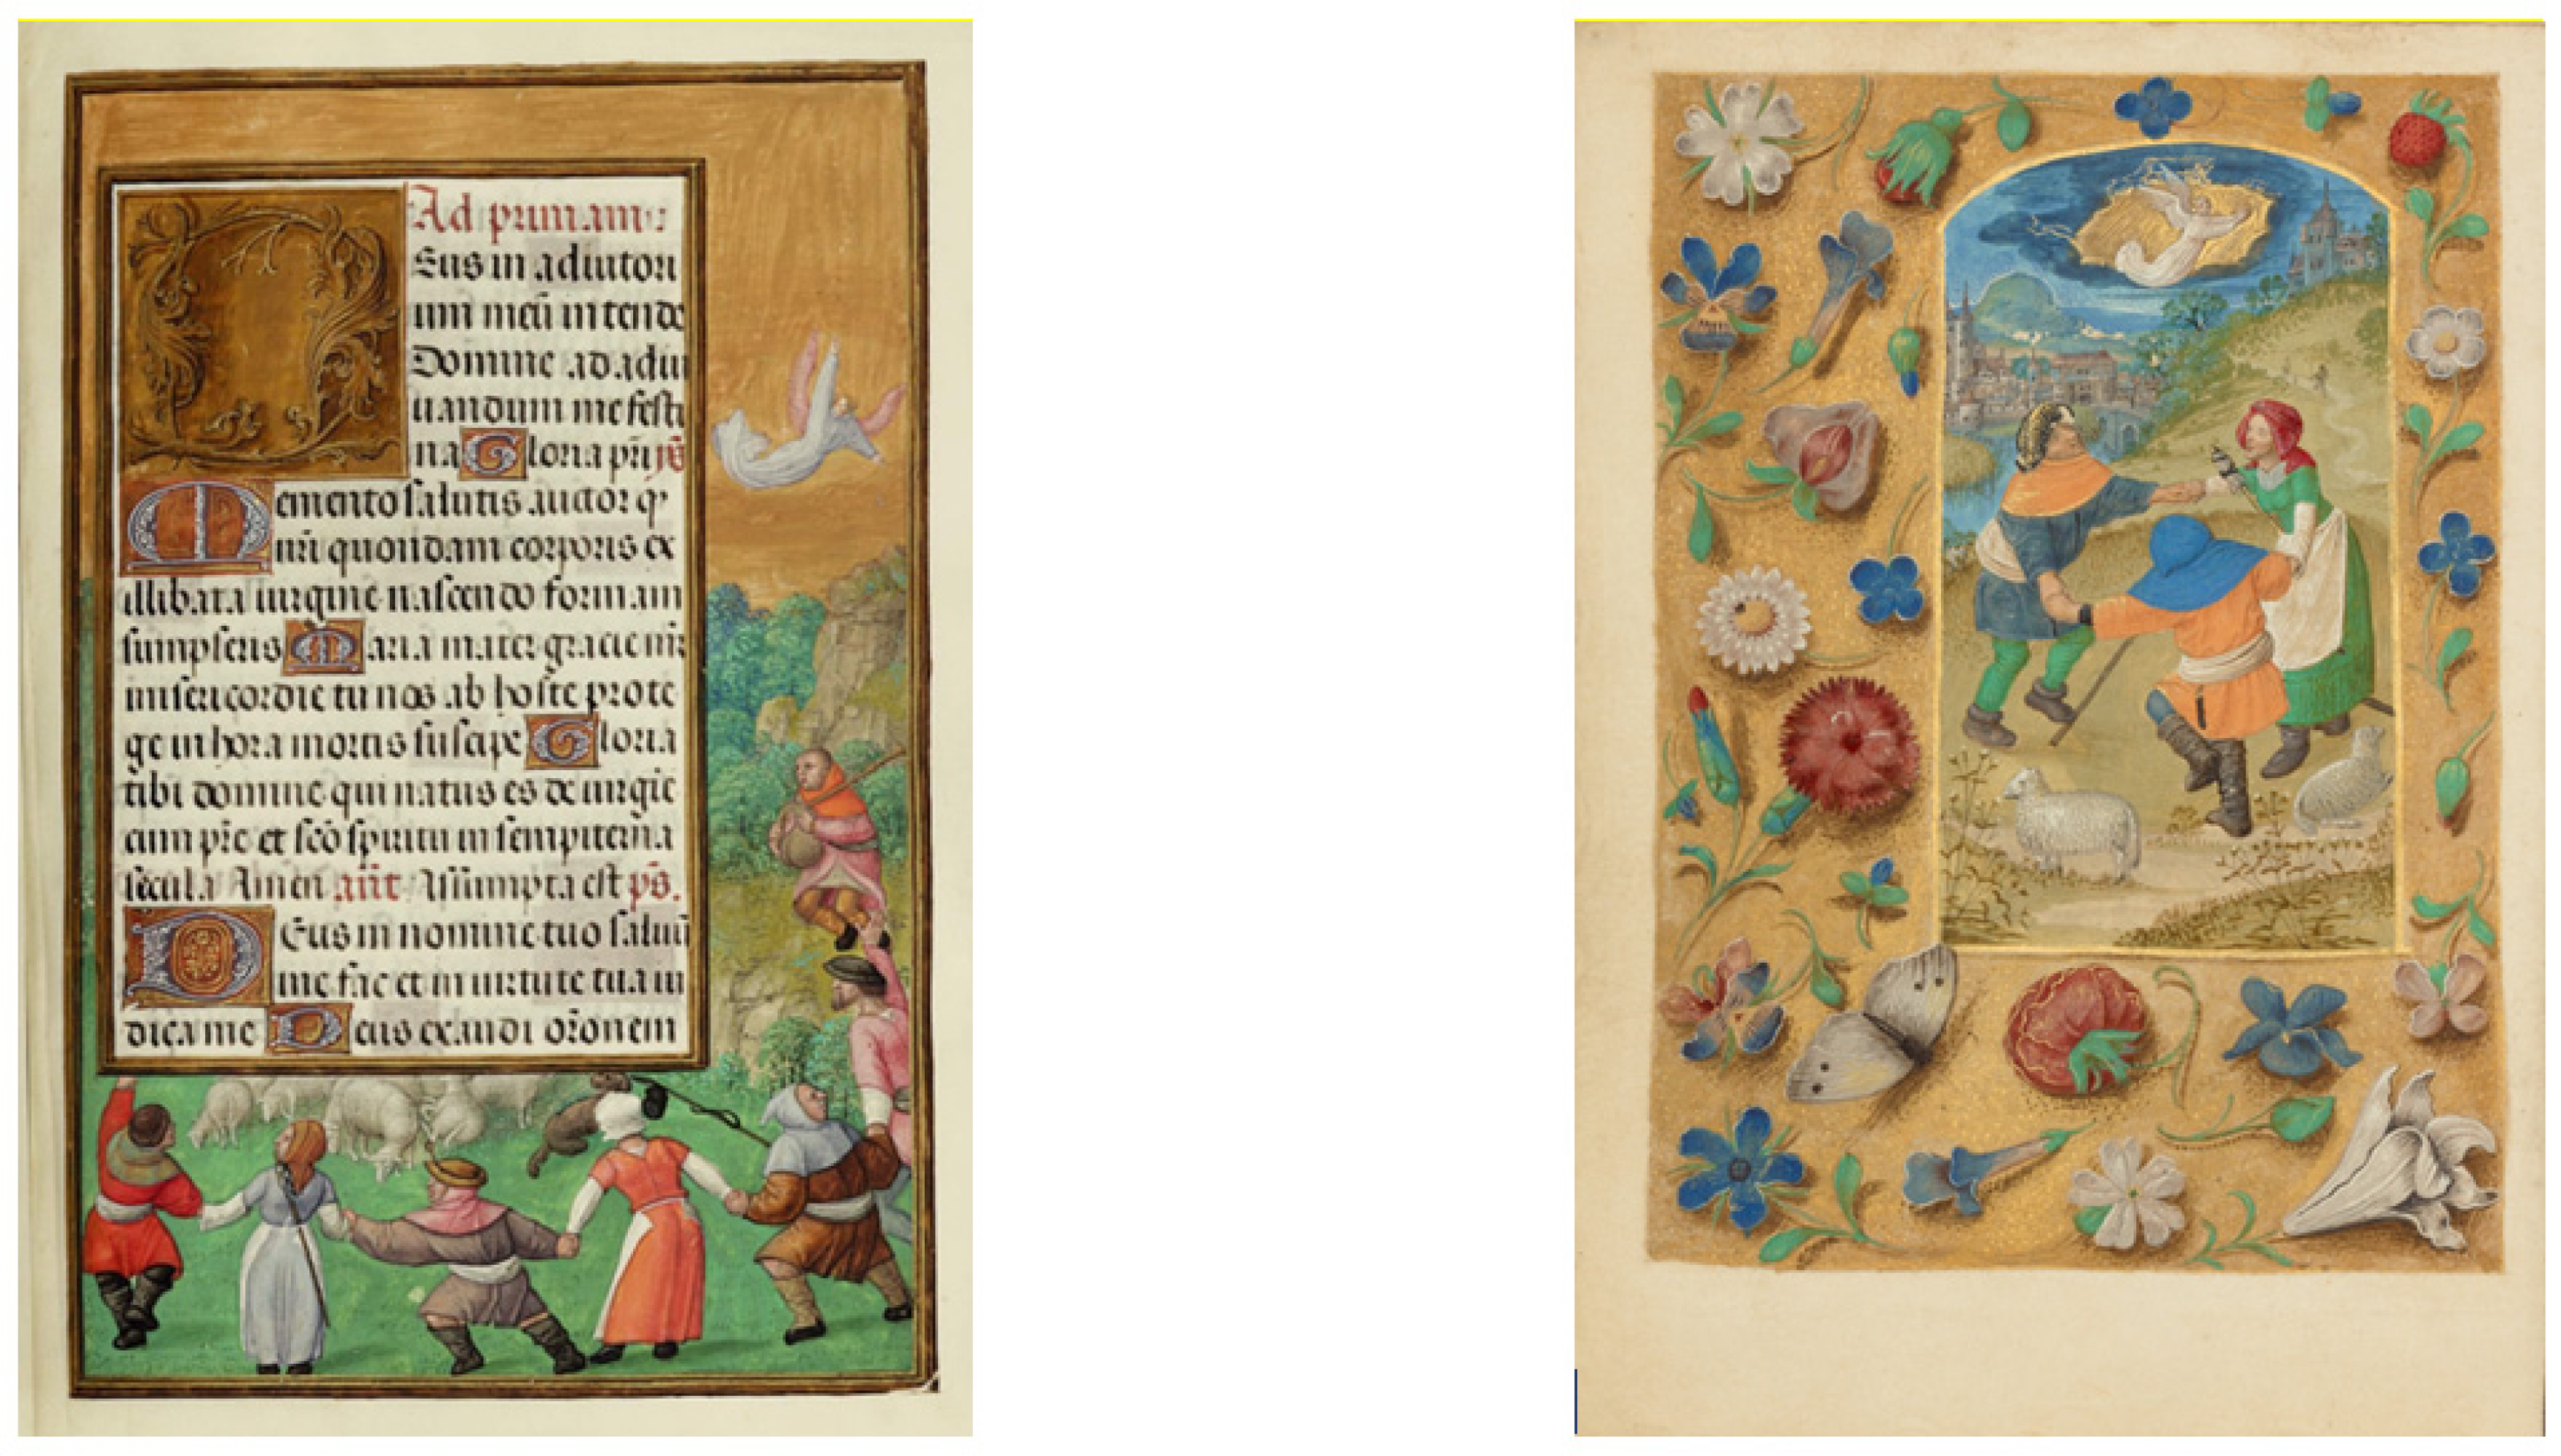 Ad primam:
Eus in adiutori
um meū intende
Domine ad adiu
uandum me festi
na Gloria pri
Memento salutis auctor qͥ
nr̄i quondam corporis ex
illibata uirgine nascendo formam
sumpseris Maria mater gracie mr̄
misericordie tu nos ab hoste prote
ge in hora mortis suscipe Gloria
tibi domine qui natus es de uirgie
cum pr̄e et sc̄o spiritu in sempiterna
secula Amen an̄t Assumpta est ps̄.
Deus in nomine tuo saluū
me fac et in uirtute tua iu
dica me Deus exaudi or̄onem